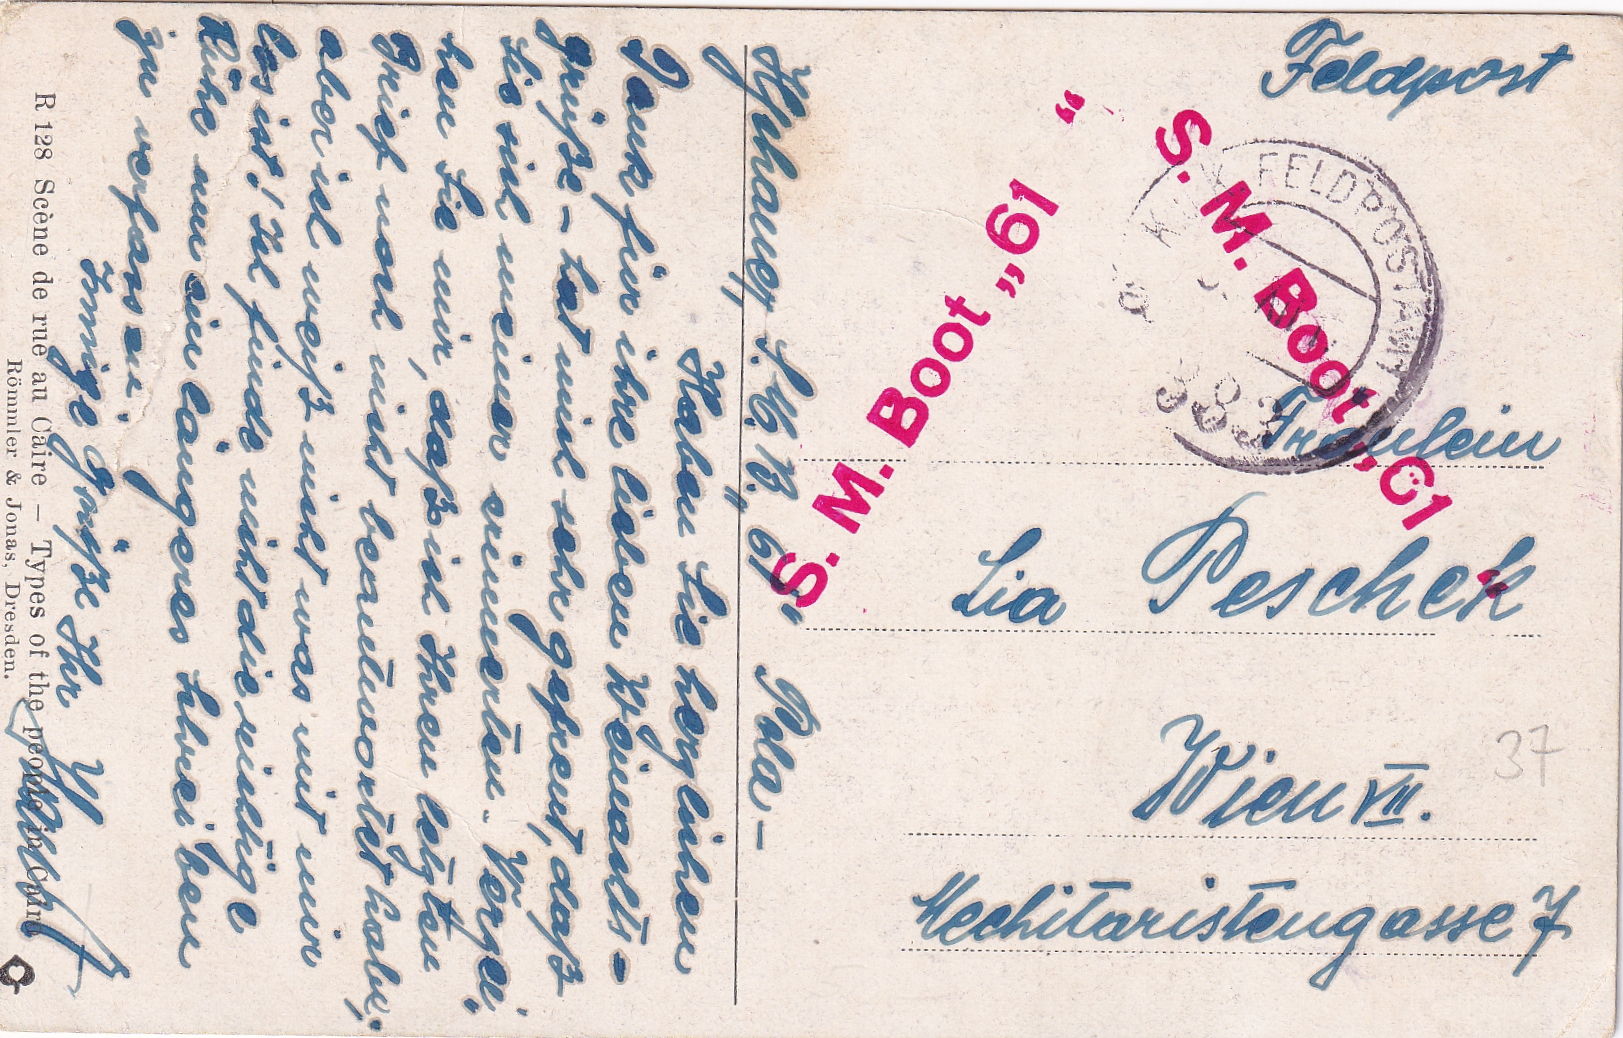 Feldpost
S. M. Boot „61“
S. M. Boot „61“
K.u.K. FELDPOSTAMT
383
Fräulein
Lia Peschek
Wien VII.
Mechitaristengasse 7
37
S.M.B. „61“ Pola –
Haben Sie herzlichen
Dank für ihre lieben Weinachts-
grüße – hat mich sehr gefreut, daß
Sie sich meiner erinerten. Verzei-
hen Sie mir, daß ich Ihren letzten
Brief noch nicht beantwortet habe,
aber ich weiß nicht was mit mir
los ist! Ich finde nicht die richtige
Ruhe um ein längeres Schreiben
zu verfassen.
Innige Grüße Ihr
R 128 Scène de rue au Caire – Types of the people in Cairo
Römmler & Jonas, Dresden.